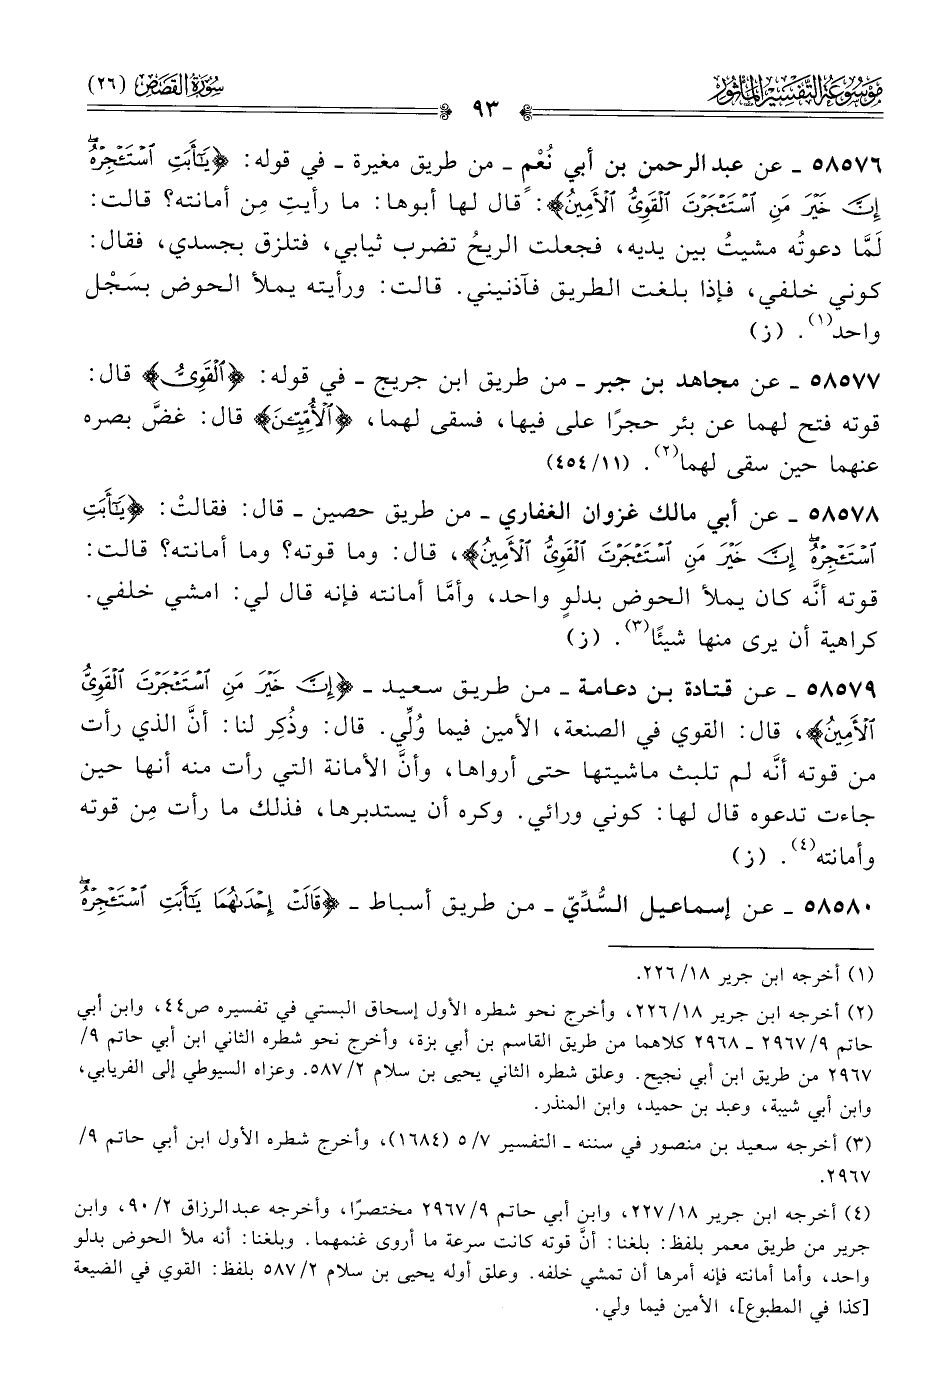 مَوْسُوعَةُ التَّفْسِيْرِ الْمَأْثُورِ
سُورَةُ القَصَصِ (٢٦)
٩٣
٥٨٥٧٦ ـ عن عبد الرحمن بن أبي نُعْمٍ ـ من طريق مغيرة ـ في قوله: ﴿يَٰٓأَبَتِ ٱسۡتَـٔۡجِرۡهُۖ
إِنَّ خَيۡرَ مَنِ ٱسۡتَـٔۡجَرۡتَ ٱلۡقَوِيُّ ٱلۡأَمِينُ﴾: قال لها أبوها: ما رأيتِ مِن أمانته؟ قالت:
لَمَّا دعوتُه مشيتُ بين يديه، فجعلت الريحُ تضرب ثيابي، فتلزق بجسدي، فقال:
كوني خلفي، فإذا بلغت الطريق فآذنيني. قالت: ورأيته يملأ الحوض بسَجْل
واحد(١). (ز)
٥٨٥٧٧ ـ عن مجاهد بن جبر ـ من طريق ابن جريج ـ في قوله: ﴿ٱلۡقَوِيُّ﴾ قال:
قوته فتح لهما عن بئر حجرًا على فيها، فسقى لهما، ﴿ٱلۡأُمِّيِّـۧنَ﴾ قال: غضَّ بصره
عنهما حين سقى لهما(٢). (٤٥٤/١١)
٥٨٥٧٨ ـ عن أبي مالك غزوان الغفاري ـ من طريق حصين ـ قال: فقالتْ: ﴿يَٰٓأَبَتِ
ٱسۡتَـٔۡجِرۡهُۖ إِنَّ خَيۡرَ مَنِ ٱسۡتَـٔۡجَرۡتَ ٱلۡقَوِيُّ ٱلۡأَمِينُ﴾، قال: وما قوته؟ وما أمانته؟ قالت:
قوته أنَّه كان يملأ الحوض بدلوٍ واحد، وأمَّا أمانته فإنه قال لي: امشي خلفي.
كراهية أن يرى منها شيئًا(٣). (ز)
٥٨٥٧٩ ـ عن قتادة بن دعامة ـ من طريق سعيد ـ ﴿إِنَّ خَيۡرَ مَنِ ٱسۡتَـٔۡجَرۡتَ ٱلۡقَوِيُّ
ٱلۡأَمِينُ﴾، قال: القوي في الصنعة، الأمين فيما وُلِّي. قال: وذُكِر لنا: أنَّ الذي رأت
من قوته أنَّه لم تلبث ماشيتها حتى أرواها، وأنَّ الأمانة التي رأت منه أنها حين
جاءت تدعوه قال لها: كوني ورائي. وكره أن يستدبرها، فذلك ما رأت مِن قوته
وأمانته(٤). (ز)
٥٨٥٨٠ ـ عن إسماعيل السُّدِّيّ ـ من طريق أسباط ـ ﴿قَالَتۡ إِحۡدَىٰهُمَا يَٰٓأَبَتِ ٱسۡتَـٔۡجِرۡهُۖ
(١) أخرجه ابن جرير ٢٢٦/١٨.
(٢) أخرجه ابن جرير ٢٢٦/١٨، وأخرج نحو شطره الأول إسحاق البستي في تفسيره ص٤٤، وابن أبي
حاتم ٢٩٦٧/٩ ـ ٢٩٦٨ كلاهما من طريق القاسم بن أبي بزة، وأخرج نحو شطره الثاني ابن أبي حاتم ٩/
٢٩٦٧ من طريق ابن أبي نجيح. وعلق شطره الثاني يحيى بن سلام ٥٨٧/٢. وعزاه السيوطي إلى الفريابي،
وابن أبي شيبة، وعبد بن حميد، وابن المنذر.
(٣) أخرجه سعيد بن منصور في سننه ـ التفسير ٥/٧ (١٦٨٤)، وأخرج شطره الأول ابن أبي حاتم ٩/
٢٩٦٧.
(٤) أخرجه ابن جرير ٢٢٧/١٨، وابن أبي حاتم ٢٩٦٧/٩ مختصرًا، وأخرجه عبد الرزاق ٩٠/٢، وابن
جرير من طريق معمر بلفظ: بلغنا: أنَّ قوته كانت سرعة ما أروى غنمهما. وبلغنا: أنه ملأ الحوض بدلو
واحد، وأما أمانته فإنه أمرها أن تمشي خلفه. وعلق أوله يحيى بن سلام ٥٨٧/٢ بلفظ: القوي في الضيعة
[كذا في المطبوع]، الأمين فيما ولي.